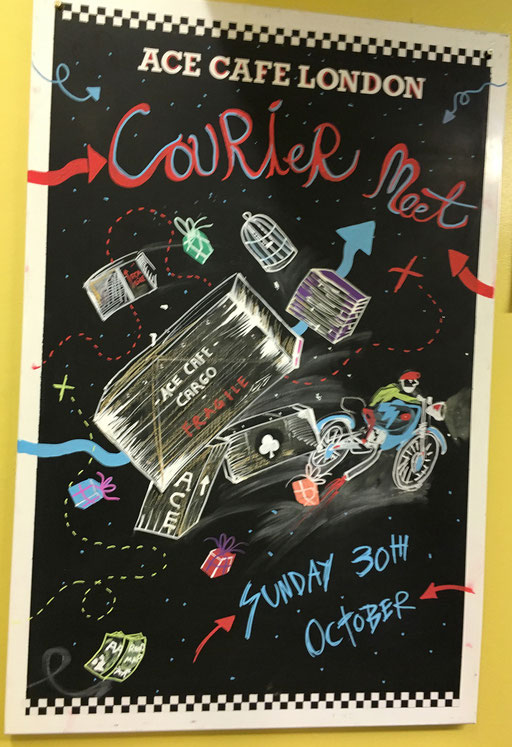 ACE CAFE LONDON
COURIER
Meet
ACE CAFE
CARGO
FRAGILE
ACE
SUNDAY 30TH
OCTOBER